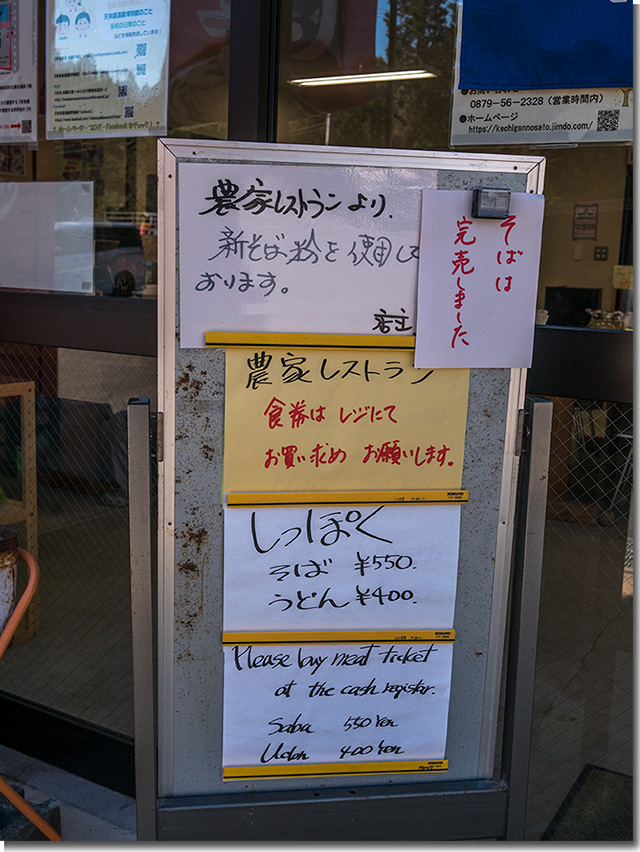 ●お問い合わせ
0879-56-2328（営業時間内）
●ホームページ
https://kechigannosato.jimdo.com/
農家レストランより.
新そば粉を使用して
おります。
店主
そばは
完売しました
農家レストラン
食券は レジにて
お買い求め お願いします。
しっぽく
そば ¥550.
うどん ¥400.
Please buy meat ticket
at the cash register.
Saba 550 Yen
Udon 400 Yen